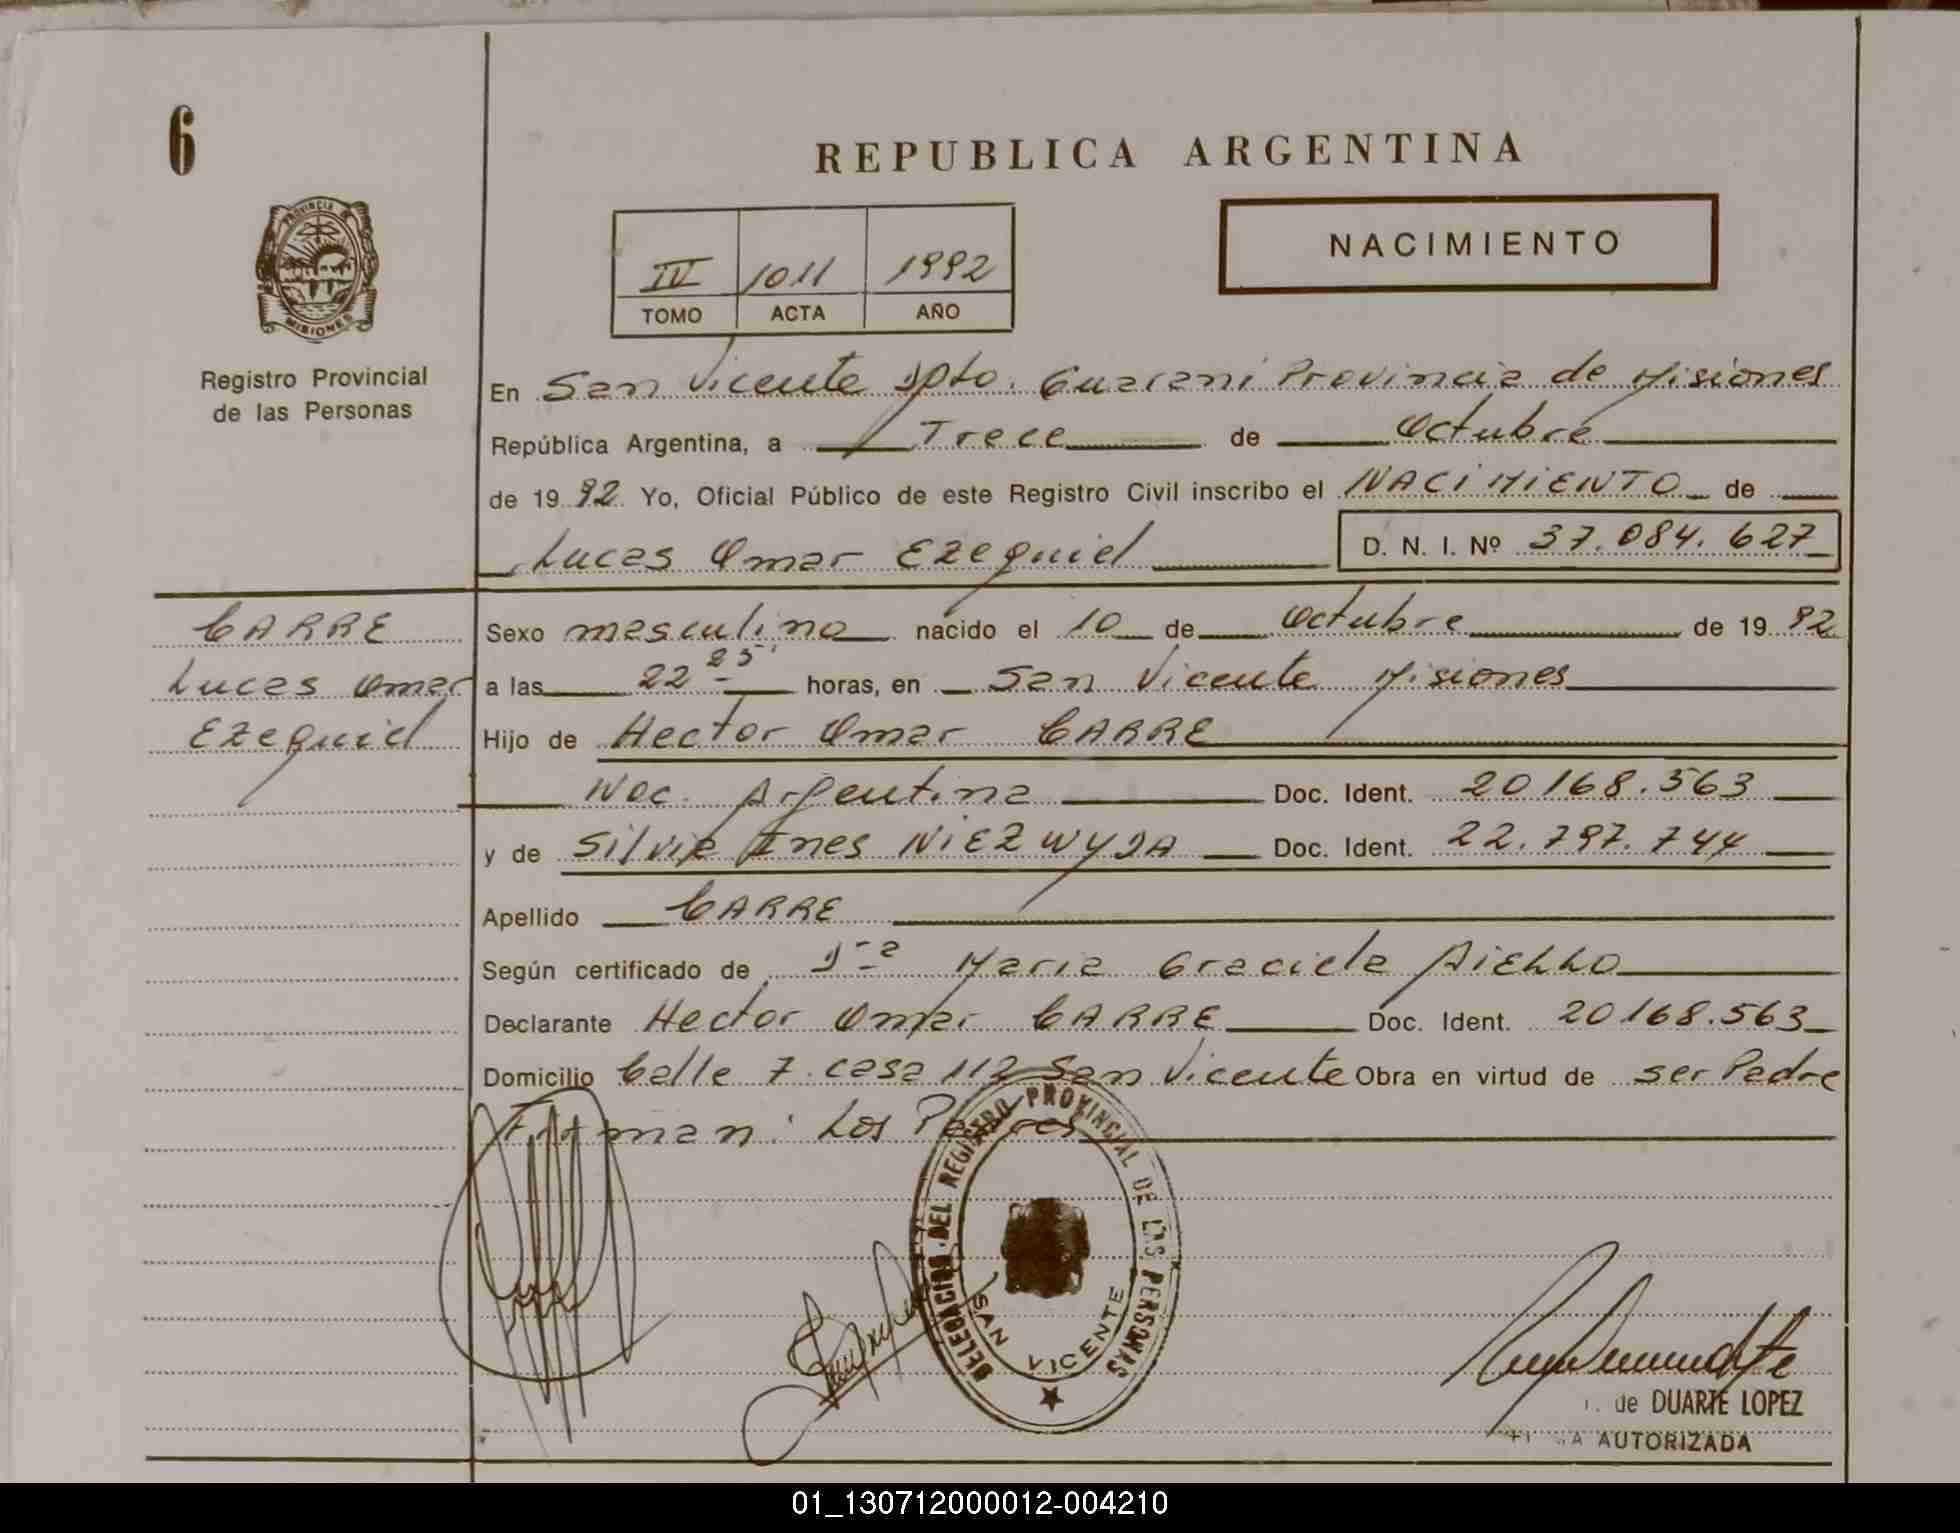 6
REPUBLICA ARGENTINA
PROVINCIA DE
MISIONES
Registro Provincial
de las Personas
IV 1011 1992
TOMO ACTA AÑO
NACIMIENTO
En San Vicente Dpto. Guarani Provincia de Misiones
República Argentina, a Trece de Octubre
de 19 92 Yo, Oficial Público de este Registro Civil inscribo el NACIMIENTO de
Lucas Omar Ezequiel D. N. I. Nº 37.084.627
CARRE
Lucas Omar
Ezequiel
Sexo masculino nacido el 10 de Octubre de 19 92
a las 22 25' horas, en San Vicente Misiones
Hijo de Hector Omar CARRE
Nac. Argentina Doc. Ident. 20168.563
y de Silvia Ines NIEZWYDA Doc. Ident. 22.797.744
Apellido CARRE
Según certificado de Dra Maria Graciela AIELLO
Declarante Hector Omar CARRE Doc. Ident. 20168.563
Domicilio Calle 7 casa 112 San Vicente Obra en virtud de ser Padre
Firman: Los Padres
DELEGACION DEL REGISTRO PROVINCIAL DE LAS PERSONAS
SAN VICENTE
de DUARTE LOPEZ
AUTORIZADA
01_130712000012-004210